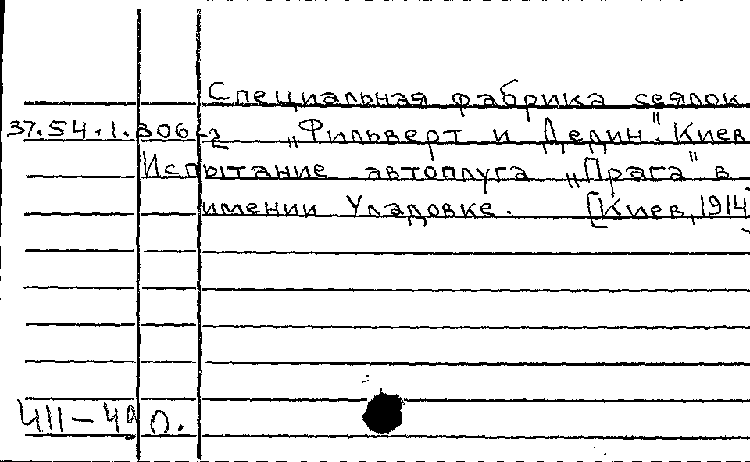 Специальная фабрика сеялок
37.54.1.306-2 „Фильверт и Дедин". Киев
Испытание автоплуга „Прага" в
имении Уладовке. [Киев, 1914